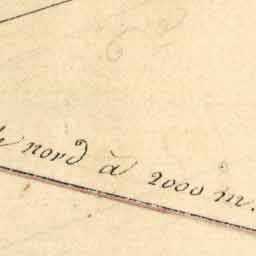 nord à 2000 m.